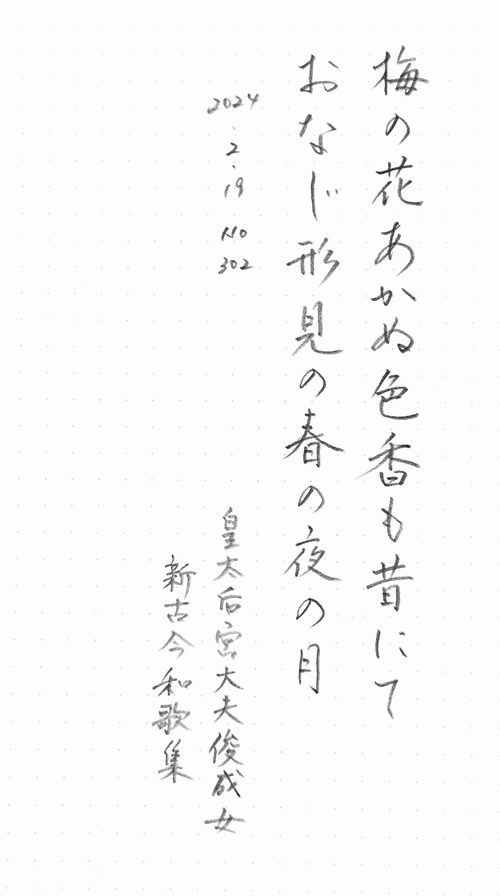 梅の花あかぬ色香も昔にて
おなじ形見の春の夜の月
2024
.
2
.
19
No
302
皇太后宮大夫俊成女
新古今和歌集